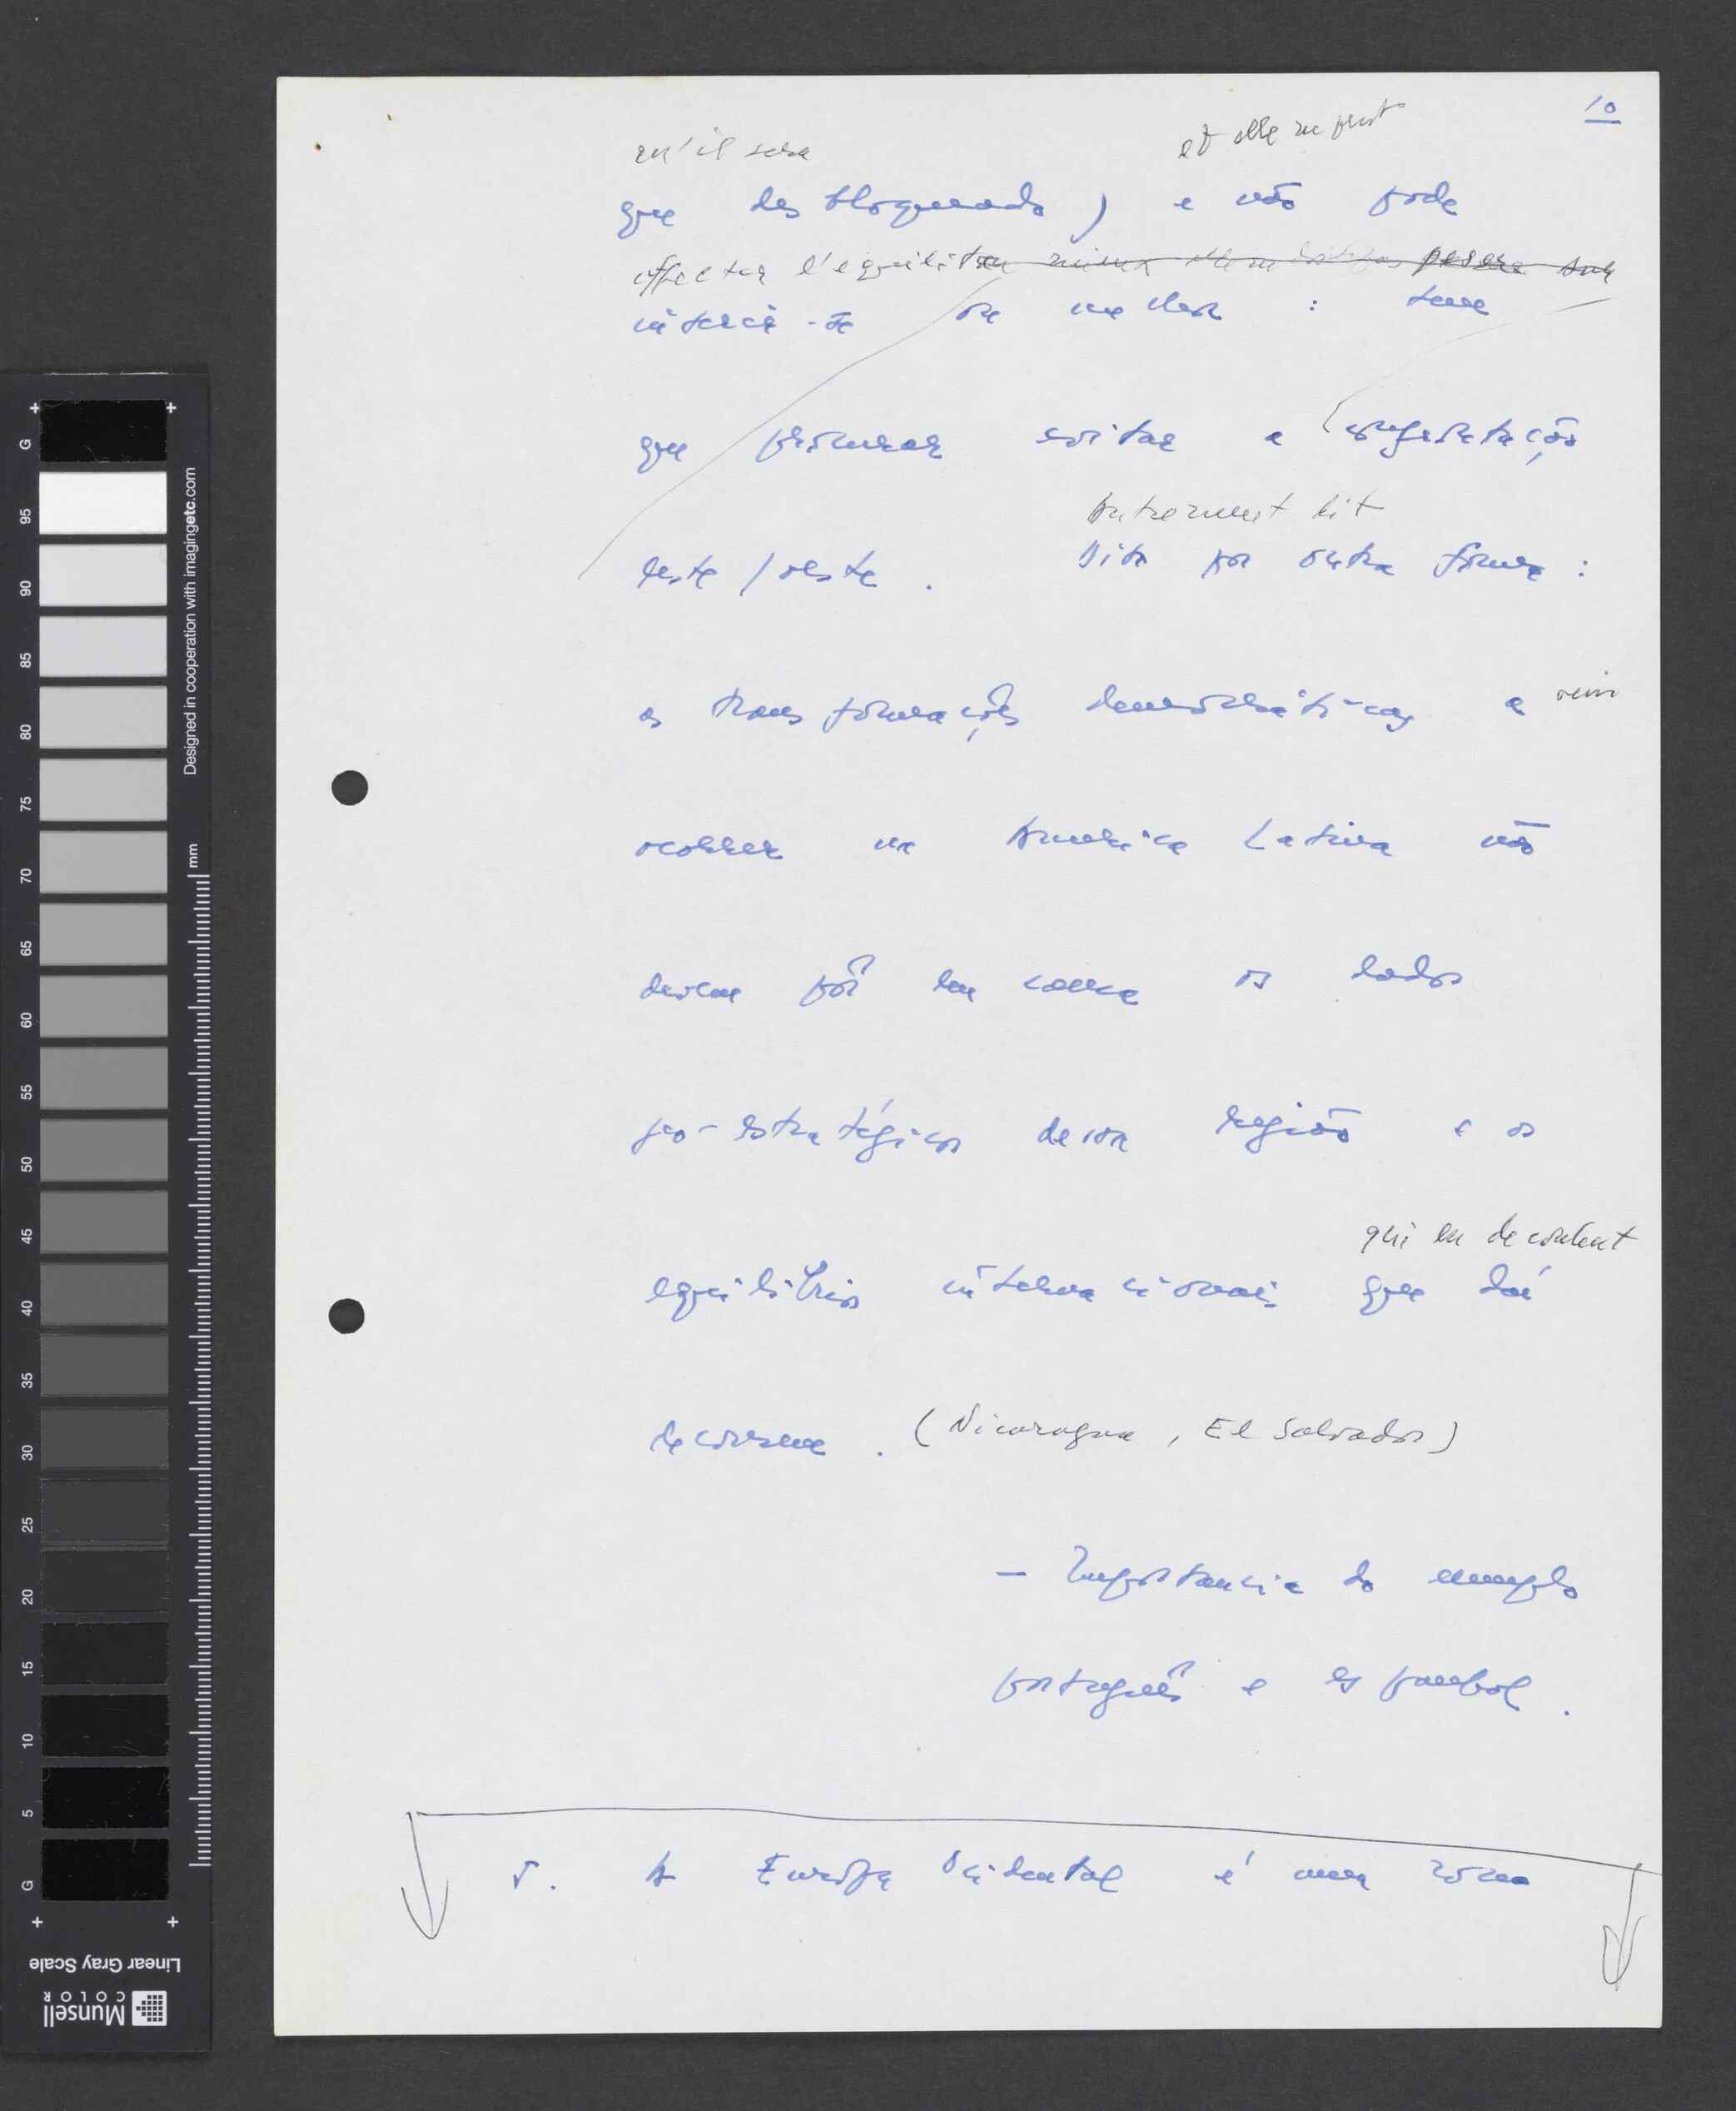 10
qu'il sera et elle ne peut
que desbloqueado) e não pode
affecter l'equilibre mieux pesera sur
inserir-se ou na : tem
que procurar evitar a confrontação
leste/oeste. Autrement dit
Dito por outra forma:
as transformações democráticas a
ocorrer na América Latina não
devem pôr em causa os dados
geo-estratégicos dessa região e os
qui en decoulent
equilíbrios internacionais que daí
decorrem. (Nicaragua, El Salvador)
– Importancia do exemplo
português e espanhol.
5. A Europa Ocidental é uma zona
G
95
90
85
80
75
70
65
60
55
50
45
40
35
30
25
20
15
10
5
G
mm
Designed in cooperation with imagingetc.com
Linear Gray Scale
Munsell
COLOR